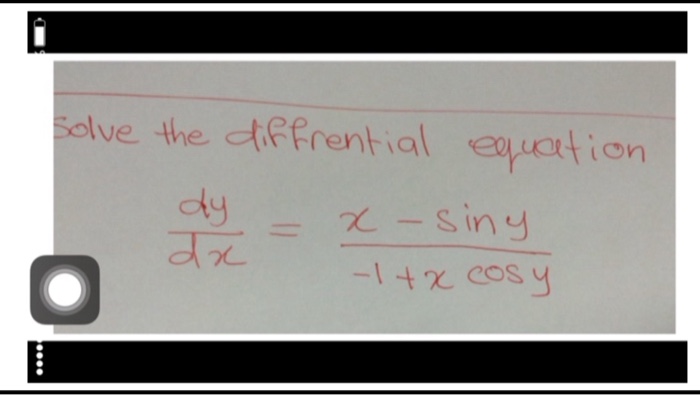 Solve the diffrential equation
dy/dx = x - sin y / -1 + x cos y